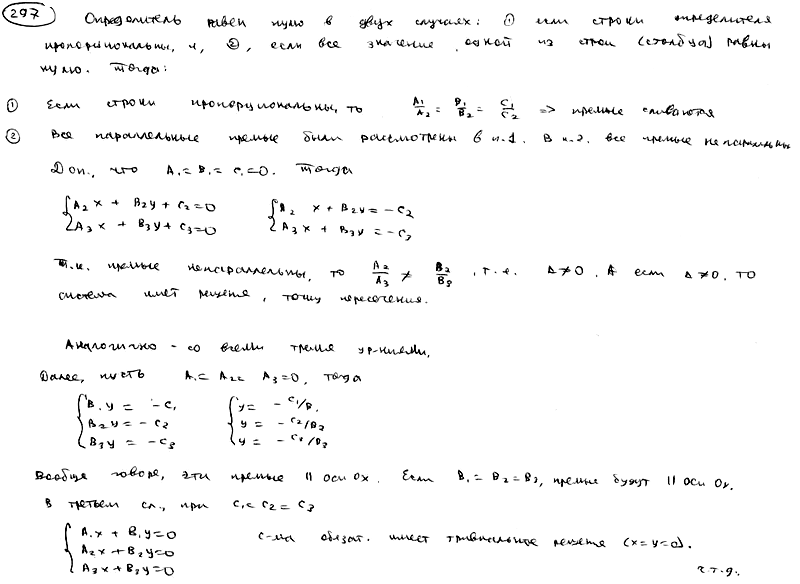 297 Определитель равен нулю в двух случаях: ① если строки определителя
пропорциональны, и, ②, если все значение одной из строк (столбца) равны
нулю. Тогда:
① Если строки пропорциональны, то A₁/A₂ = B₁/B₂ = C₁/C₂ => прямые сливаются
② Все параллельные прямые были рассмотрены в п.1. В п.2. все прямые непараллельны
Доп., что A₁ = B₁ = C₁ = 0. Тогда
{ A₂x + B₂y + C₂ = 0 { A₂ x + B₂y = -C₂
A₃x + B₃y + C₃ = 0 A₃x + B₃y = -C₃
Т.к. прямые непараллельны, то A₂/A₃ ≠ B₂/B₃, т.е. Δ≠0. А если Δ≠0, то
система имеет решение, точку пересечения.
Аналогично - со всеми тремя ур-ниями.
Далее, пусть A₁ = A₂ = A₃ = 0, тогда
{ B₁y = -C₁ { y = -C₁/B₁
B₂y = -C₂ y = -C₂/B₂
B₃y = -C₃ y = -C₃/B₃
Вообще говоря, эти прямые || оси Ox. Если B₁ = B₂ = B₃, прямые будут || оси Oy.
В третьем сл., при C₁ = C₂ = C₃
{ A₁x + B₁y = 0
A₂x + B₂y = 0 с-ма обязат. имеет тривиальное решение (x=y=0).
A₃x + B₃y = 0 ч.т.д.